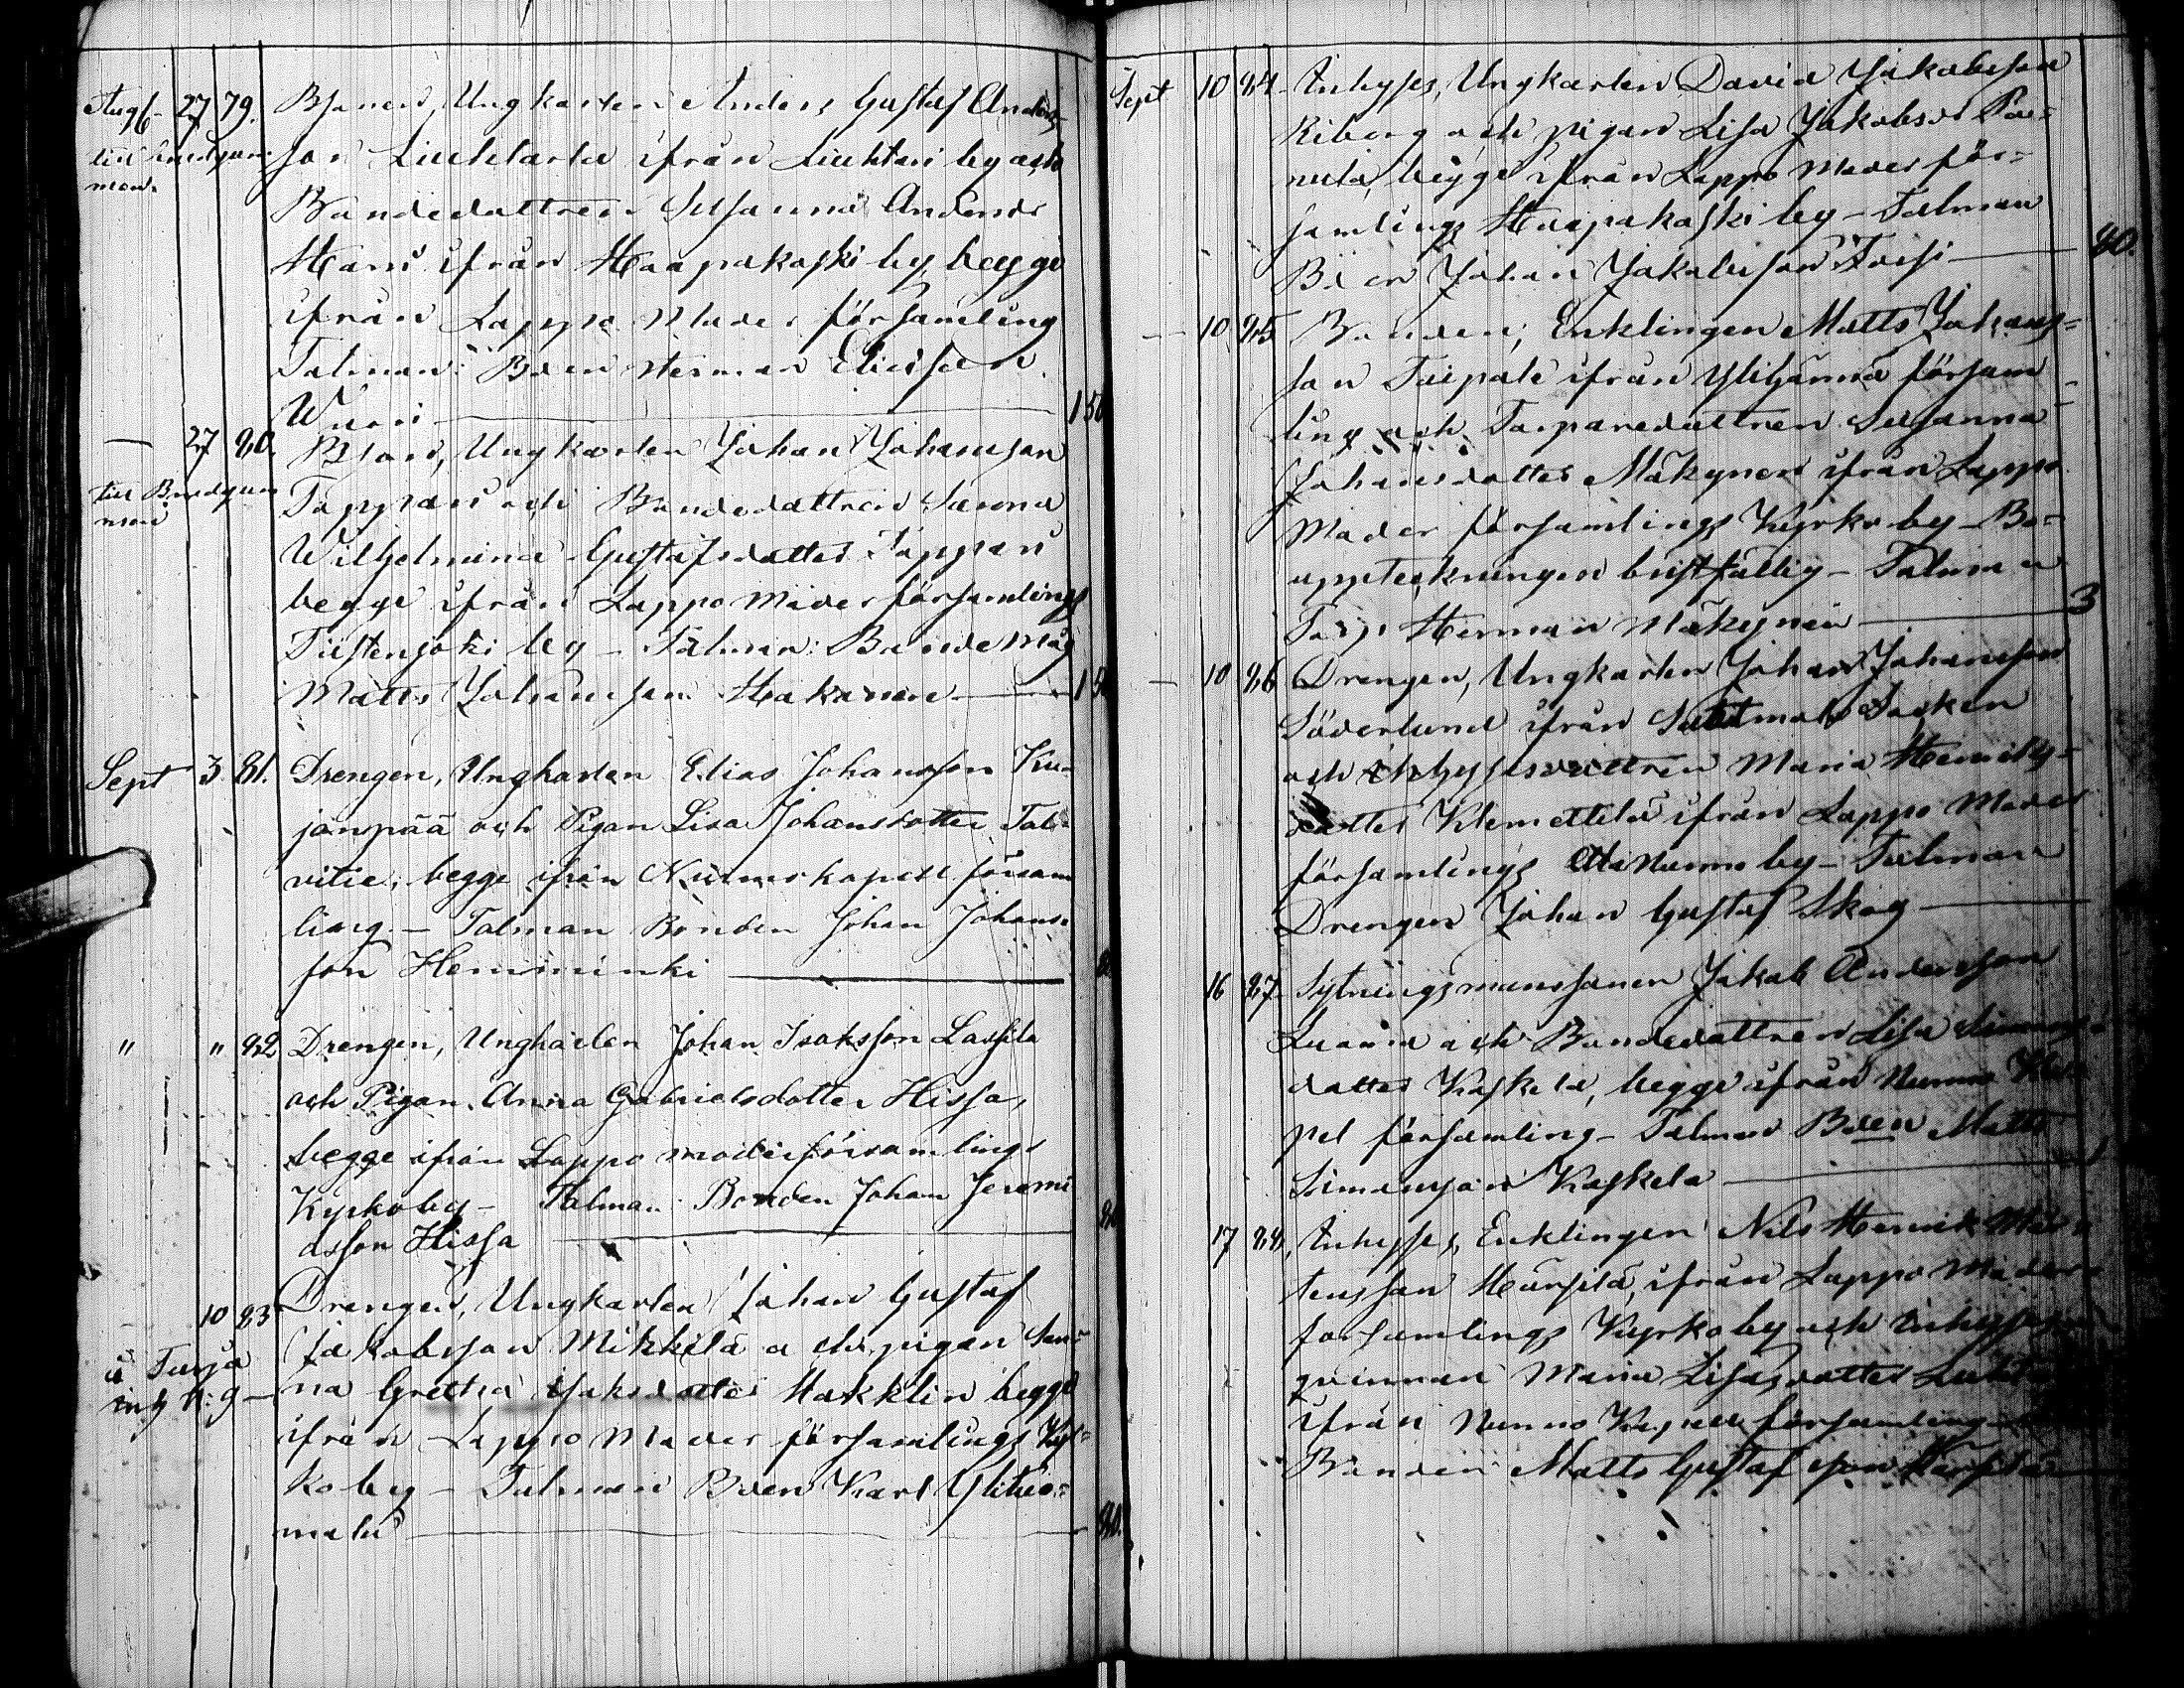 Augt 27 79. Bsonen, Ungkarlen Anders Gustaf Anders-
son Liuhtarla ifrån Liuhtari by och
Bondedottren Susanna Andersdr
Harri ifrån Haapakoski by, begge
ifrån Lappo Moder församling
Talman: Bden Herman Eliasson
Wuori 1 50
— 27 80. Bson, Ungkarlen Johan Johansson
till Brudgum
men
Tappan och Bondedottren Sanna
Wilhelmina Gustafsdotter Tappan
begge ifrån Lappo Moderförsamlings
Tiistenjoki by — Talman: Bondemåg
Matts Johansson Hakanen 1 50
Sept 3 81. Drengen, Ungkarlen Elias Johansson Ku-
janpää och Pigan Lisa Johansdotter Tal-
vitie, begge ifrån Nurmo kapell försam
ling — Talman Bonden Johan Johans-
son Hemminki
" " 82 Drengen, Ungkarlen Johan Isaksson Lassila
och Pigan Anna Gabrielsdotter Hissa,
begge ifrån Lappo moderförsamlings
Kyrkoby — Talman: Bonden Johan Jeremi
asson Hissa 80
10 83 Drengen, Ungkarlen Johan Gustaf
Jakobsson Mikkilä och pigan San-
na Gretha Isaksdotter Makklin begge
ifrån Lappo Moder församlings Kyr-
ko by — Talman Bden Karl Ylituo-
mala 80.
Sept 10 84 Inhyses, Ungkarlen David Jakobsson
Riborg och pigan Lisa Jakobsdr Pou-
nula, begge ifrån Lappo Moder för-
samlings Haapakoski by — Talman
Bden Johan Jakobsson Toisi 80.
— 10 85 Bonden, Enklingen Matts Johans-
son Taipale ifrån Ylihärmä försam
ling och Torparedottren Susanna
Johansdotter Mäkynen ifrån Lappo
Moder församlings Kyrko by — Bo-
uppteckningen bristfällig — Talman
Torp Herman Mäkynen 3
— 10 86 Drengen, Ungkarlen Johan Johansson
Söderlund ifrån Socken
och Inhysesdottren Maria Henriks-
dotter Klemettilä ifrån Lappo Moder
församlings Alanurmo by — Talman
Drengen Johan Gustaf Skog
16 87 Sytningsmanssonen Jakob Andersson
Luoma och Bondedottren Lisa Simons
dotter Kaskela, begge ifrån Nurmo Ka
pel församling — Talman Bden Matts
Simonsson Kaskela 1
17 88, Inhyses, Enklingen Nils Henrik Mår
tensson Härsilä, ifrån Lappo Moder
församlings Kyrkoby och Inhyses
qvinnan Maria Lisa dotter
ifrån Nurmo Kapell församling
Bonden Matts Gustafsson Härsilä